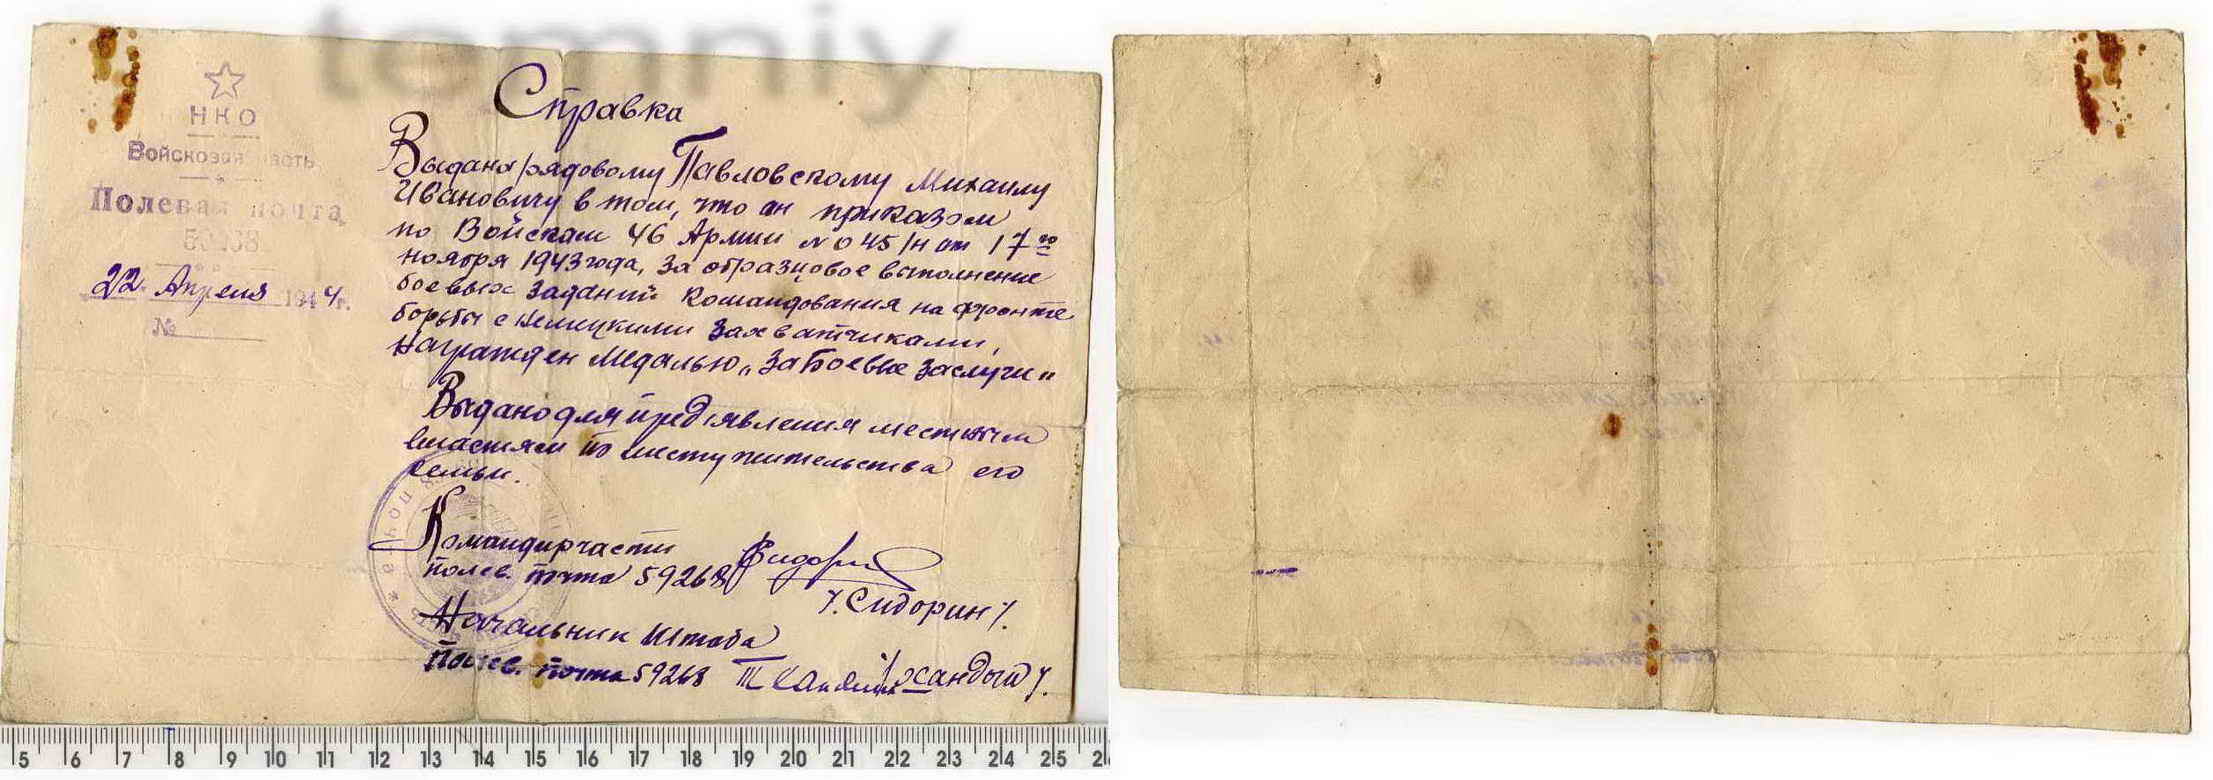 temniy
НКО
Войсковая часть
Полевая почта
59268
22 Апреля 1944 г.
№
Справка
Выдана рядовому Павловскому Михаилу
Ивановичу в том, что он приказом
по Войскам 46 Армии № 045/н от 17го
ноября 1943 года, за образцовое выполнение
боевых заданий Командования на фронте
борьбы с немецкими захватчиками,
награжден Медалью „За Боевые заслуги"
Выдано для предъявления местным
властям по месту жительства его
семьи.
Командир части
полев. почта 59268
/. Сидорин /.
Начальник Штаба
Полев. почта 59268
5 6 7 8 9 10 11 12 13 14 15 16 17 18 19 20 21 22 23 24 25